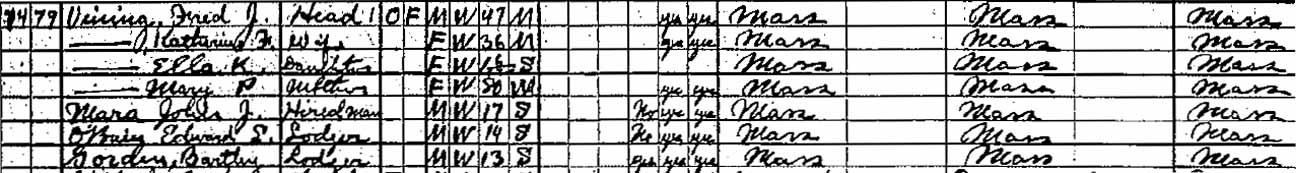 74 79 Vining, Fred J. Head 1 O F M W 47 M yes yes Mass Mass Mass
Katherine F. Wife F W 36 M yes yes Mass Mass Mass
Ella K. Daughter F W S Mass Mass Mass
Mary P. Mother F W 80 yes yes Mass Mass Mass
Mara John J. Hired man M W 17 S No yes yes Mass Mass Mass
Edward S. Lodger M W 14 S No yes yes Mass Mass Mass
Lodger M W 13 S yes yes yes Mass Mass Mass